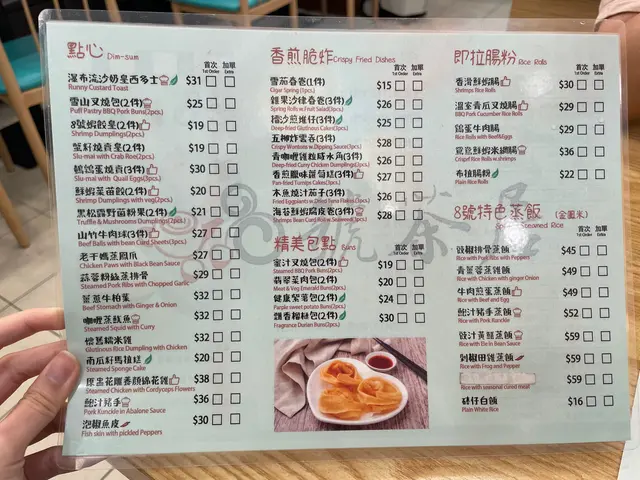 點心 Dim-sum
首次 加單
1st Order Extra
瀑布流沙奶皇西多士 $31
Runny Custard Toast
雪山叉燒包(2件) $25
Puff Pastry BBQ Pork Buns(2pcs.)
8號蝦餃皇(2件) $29
Shrimp Dumplings(2pcs.)
蟹籽燒賣(2件) $19
Siu-mai with Crab Roe(2pcs.)
鵪鶉蛋燒賣(3件) $30
Siu-mai with Quail Eggs(3pcs.)
鮮蝦菜苗餃(2件) $20
Shrimp Dumplings with veg(2pcs.)
黑松露野菌粉果(2件) $21
Truffle & Mushrooms Dumplings(2pcs.)
山竹牛肉球(3件) $27
Beef Balls with bean Curd Sheets(3pcs.)
老干媽蒸鳳爪 $27
Chicken Paws with Black Bean Sauce
蒜蓉粉絲蒸排骨 $29
Steamed Pork Ribs with Chopped Garlic
薑蔥牛柏葉 $32
Beef Stomach with Ginger & Onion
咖喱蒸魷魚 $32
Steamed Squid with Curry
懷舊糯米雞 $32
Glutinous Rice Dumpling with Chicken
南瓜籽馬拉糕 $20
Steamed Sponge Cake
原盅花雕蟲草花雞 $38
Steamed Chicken with Cordyceps Flowers
鮑汁豬手 $36
Pork Kunckle in Abalone Sauce
泡椒魚皮 $30
Fish skin with pickled Peppers
香煎脆炸 Crispy Fried Dishes
首次 加單
1st Order Extra
雪茄春卷(1件) $15
Cigar Spring (1pc.)
雜果沙律春卷(3件) $26
Spring Rolls w.Fruit Salad(3pcs.)
擂沙煎堆仔(3件) $25
Deep-fried Glutinous Cakes(3pcs.)
五柳炸雲吞(3件) $26
Crispy Wontons w.Dipping Sauce(3pcs.)
青咖喱雞粒咸水角(3件) $27
Deep-fried Curry Chicken Dumplings(3pcs.)
香煎臘味蘿蔔糕(3件) $27
Pan-fried Turnips Cakes(3pcs.)
木魚燒汁茄子(3件) $28
Fried Eggplants w.Dried Tuna Flakes(3pcs.)
海苔鮮蝦腐皮卷(3件) $28
Shrimps Bean Curd Rolls w.Seaweed(3pcs.)
精美包點 Buns
首次 加單
1st Order Extra
蜜汁叉燒包(2件) $19
Steamed BBQ Pork Buns(2pcs.)
翡翠菜肉包(2件) $20
Meat & Veg Emerald Buns(2pcs.)
健康紫薯包(2件) $24
Sweet potato Buns(2pcs.)
爆香榴槤包(2件) $30
Fragrance Durian Buns(2pcs.)
即拉腸粉 Rice Rolls
首次 加單
1st Order Extra
香滑鮮蝦腸 $30
Shrimps Rice Rolls
溫室青瓜叉燒腸 $29
BBQ Pork Cucumber Rice Rolls
鴛蛋牛肉腸 $29
Rice Rolls with Beef&Eggs
鴛鴦鮮蝦米網腸 $36
Crispy Rice Rolls w.shrimps
布拉腸粉 $22
Plain Rice Rolls
8號特色蒸飯 (金鳳米)
Special Steamed Rice
首次 加單
1st Order Extra
豉椒排骨蒸飯 $45
Rice with Pork Ribs with Peppers
青薑蓉蒸雞飯 $49
Rice with Chicken with ginger Onion
牛肉煎蛋蒸飯 $49
Rice with Beef and Egg
鮑汁豬手蒸飯 $52
Rice with Pork Kunckle
豉汁黃鱔蒸飯 $59
Rice with Ele in Bean Sauce
剁椒田雞蒸飯 $59
Rice with Frog and Pepper
$59
Rice with seasonal cured meat
砵仔白飯 $16
Plain White Rice